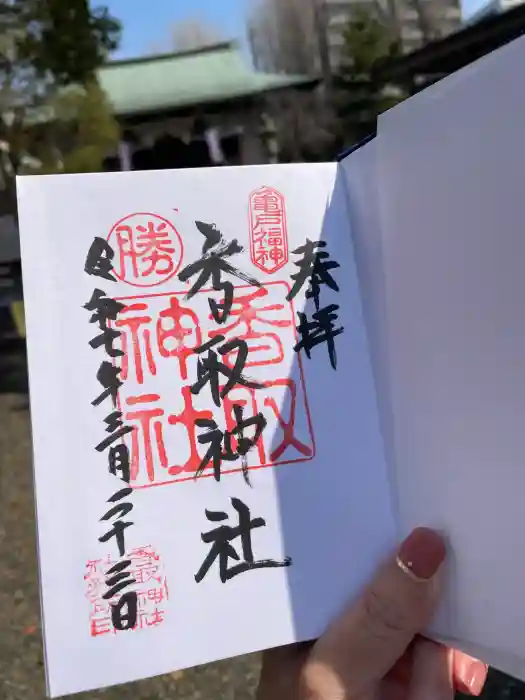 奉拝
亀戸福神
香取神社
香取神社
勝
令和七年三月二十三日